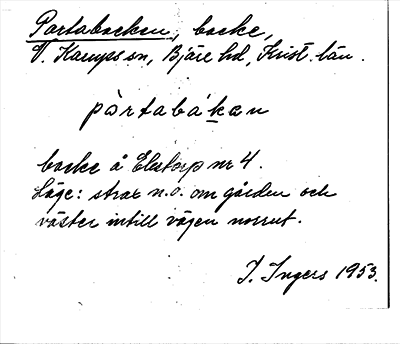 Portabacken, backe,
V. Karups sn, Bjäre hd, Krist. län.
pòrtabákan
backe å Elestorp nr 4.
Läge: strax n.o. om gården och
väster intill vägen norrut.
I. Ingers 1953.